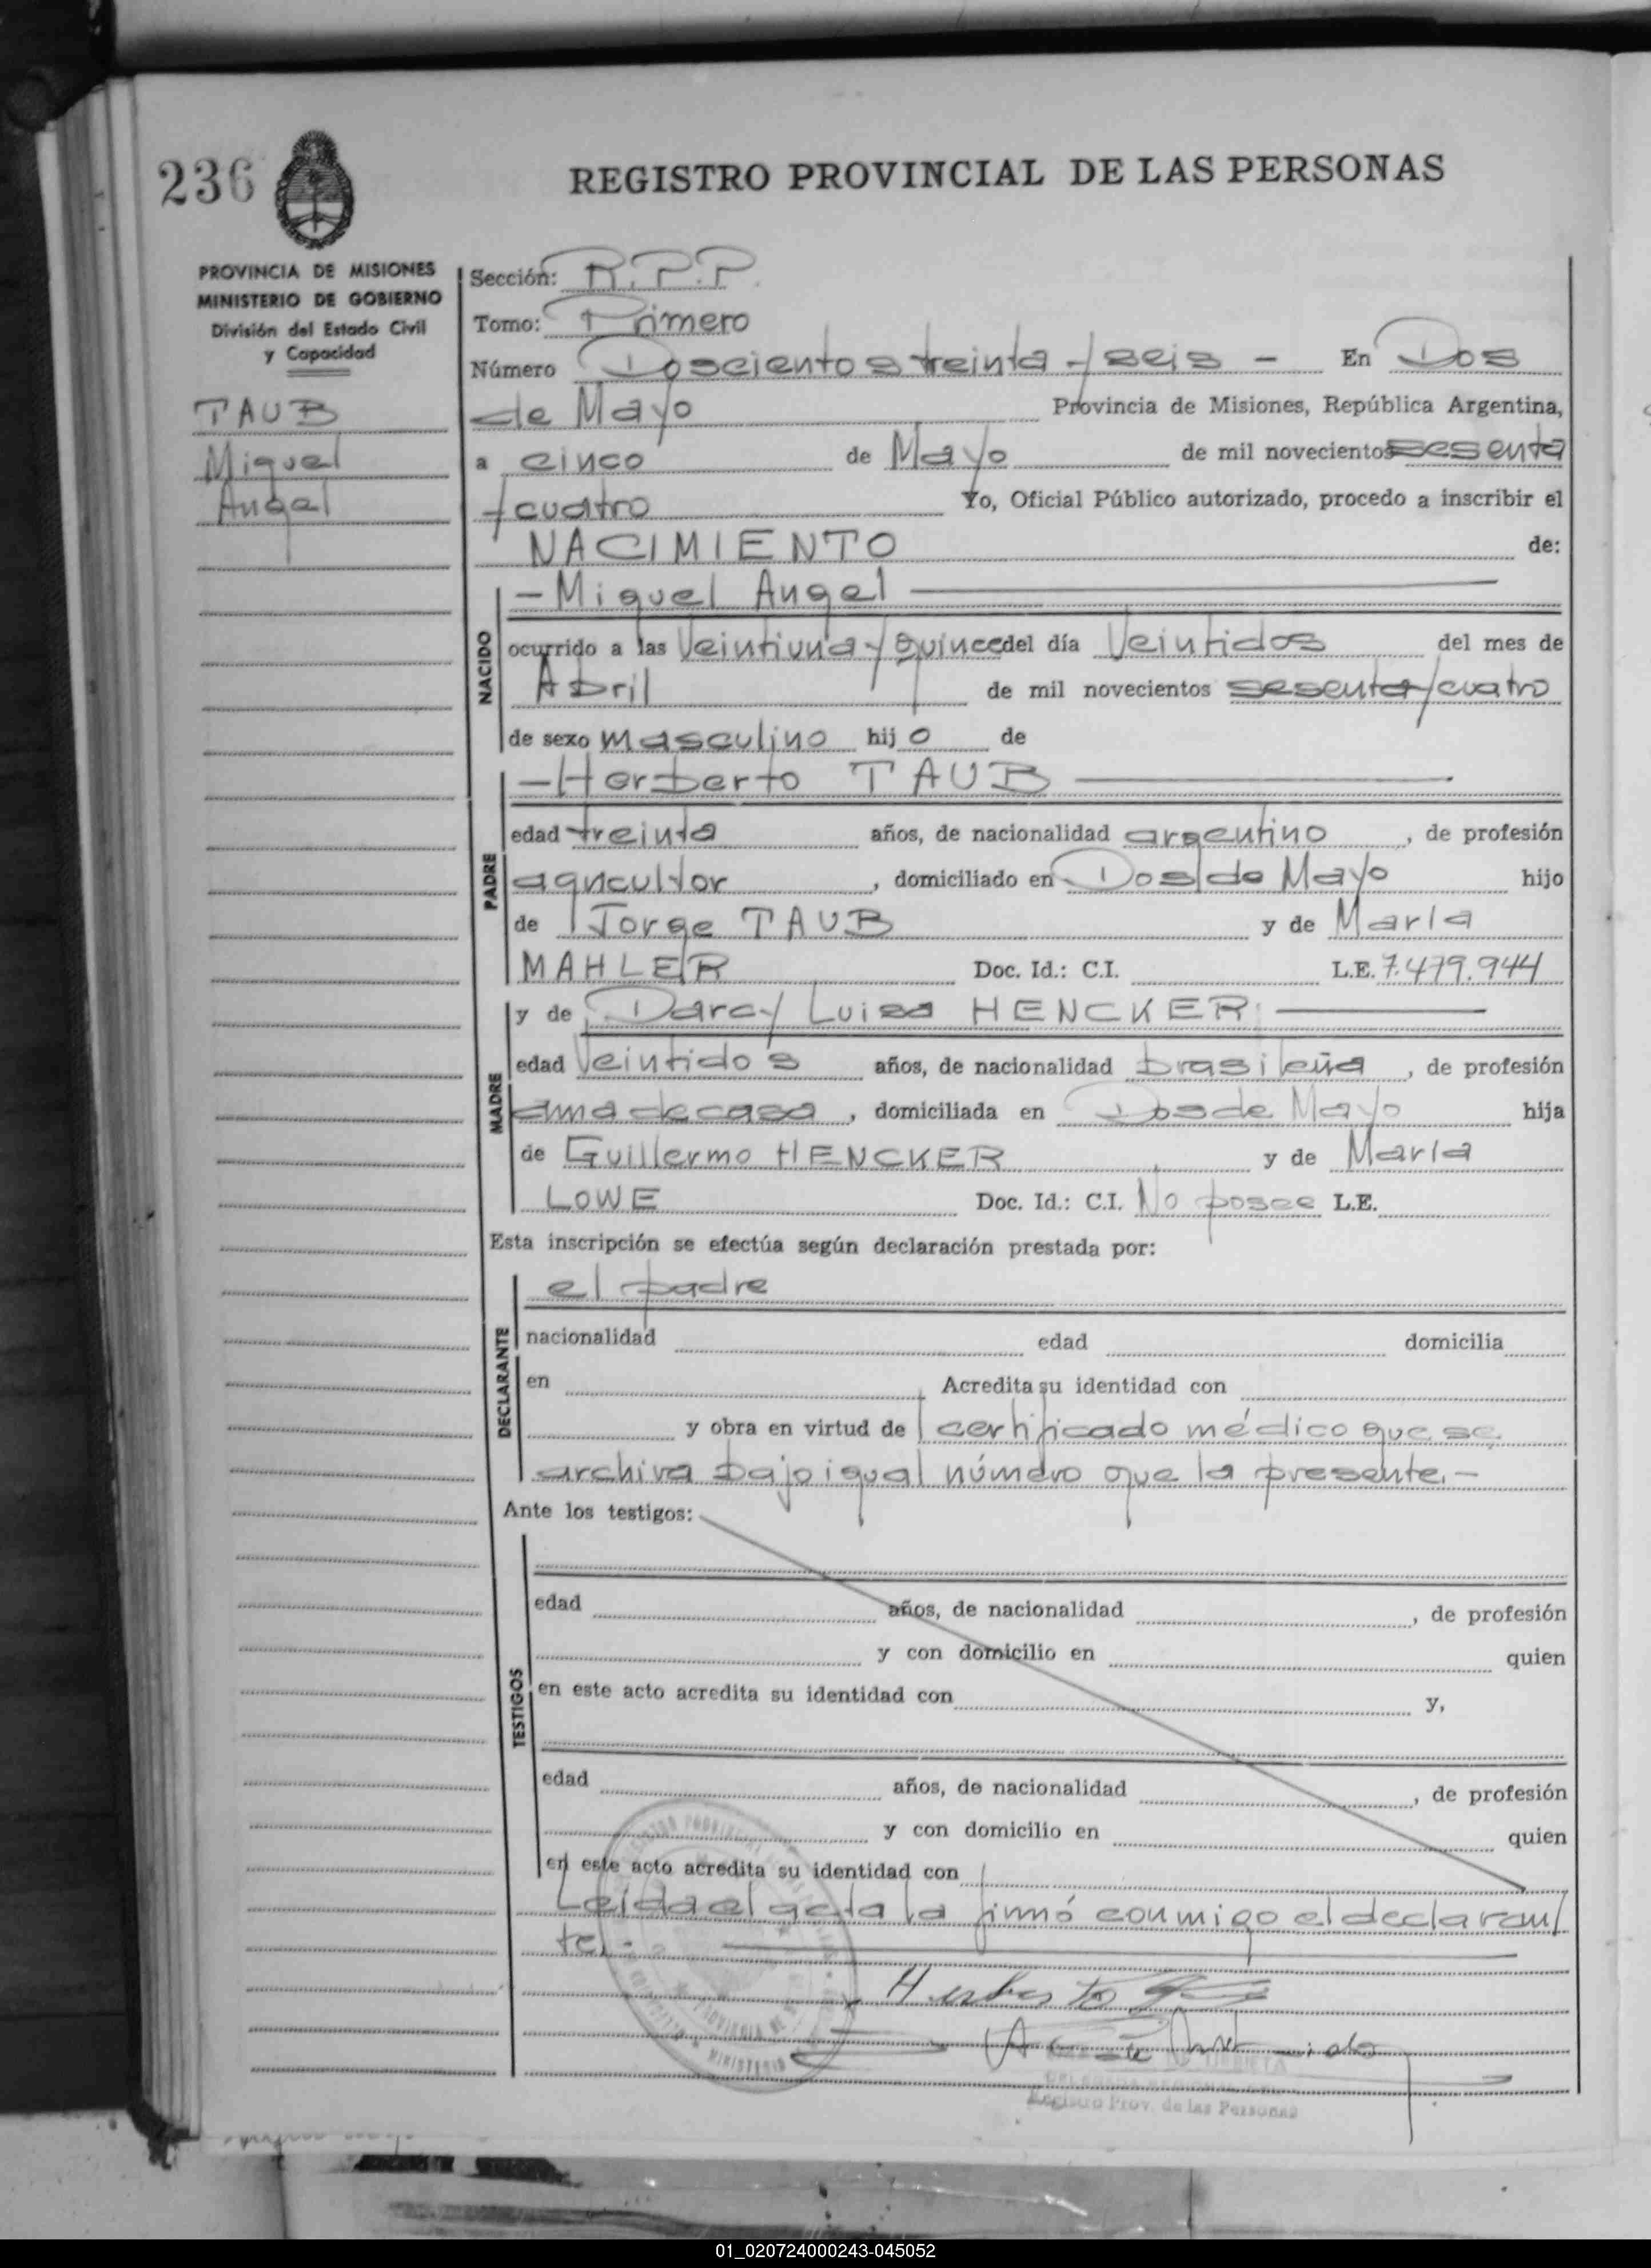 236
REGISTRO PROVINCIAL DE LAS PERSONAS
PROVINCIA DE MISIONES
MINISTERIO DE GOBIERNO
División del Estado Civil
y Capacidad
TAUB
Miguel
Angel
Sección: R.P.P.
Tomo: Primero
Número Doscientos treinta y seis - En Dos
de Mayo Provincia de Misiones, República Argentina,
a cinco de Mayo de mil novecientos sesenta
y cuatro Yo, Oficial Público autorizado, procedo a inscribir el
NACIMIENTO de:
NACIDO
- Miguel Angel
ocurrido a las Veintiuna y quince del día Veintidos del mes de
Abril de mil novecientos sesenta y cuatro
de sexo masculino hijo de
PADRE
- Herberto TAUB
edad treinta años, de nacionalidad argentino, de profesión
agricultor, domiciliado en Dos de Mayo hijo
de Jorge TAUB y de María
MAHLER Doc. Id.: C.I. L.E. 7.479.944
MADRE
y de Darcy Luisa HENCKER
edad Veintidos años, de nacionalidad brasileña, de profesión
ama de casa, domiciliada en Dos de Mayo hija
de Guillermo HENCKER y de María
LOWE Doc. Id.: C.I. No posee L.E.
Esta inscripción se efectúa según declaración prestada por:
DECLARANTE
el padre
nacionalidad edad domicilia
en Acredita su identidad con
y obra en virtud de certificado médico que se
archiva bajo igual número que la presente.-
Ante los testigos:
TESTIGOS
edad años, de nacionalidad , de profesión
y con domicilio en quien
en este acto acredita su identidad con y,
edad años, de nacionalidad , de profesión
y con domicilio en quien
en este acto acredita su identidad con
Leida el acta la firmó conmigo el declaran
te.-
Registro Prov. de las Personas
01_020724000243-045052